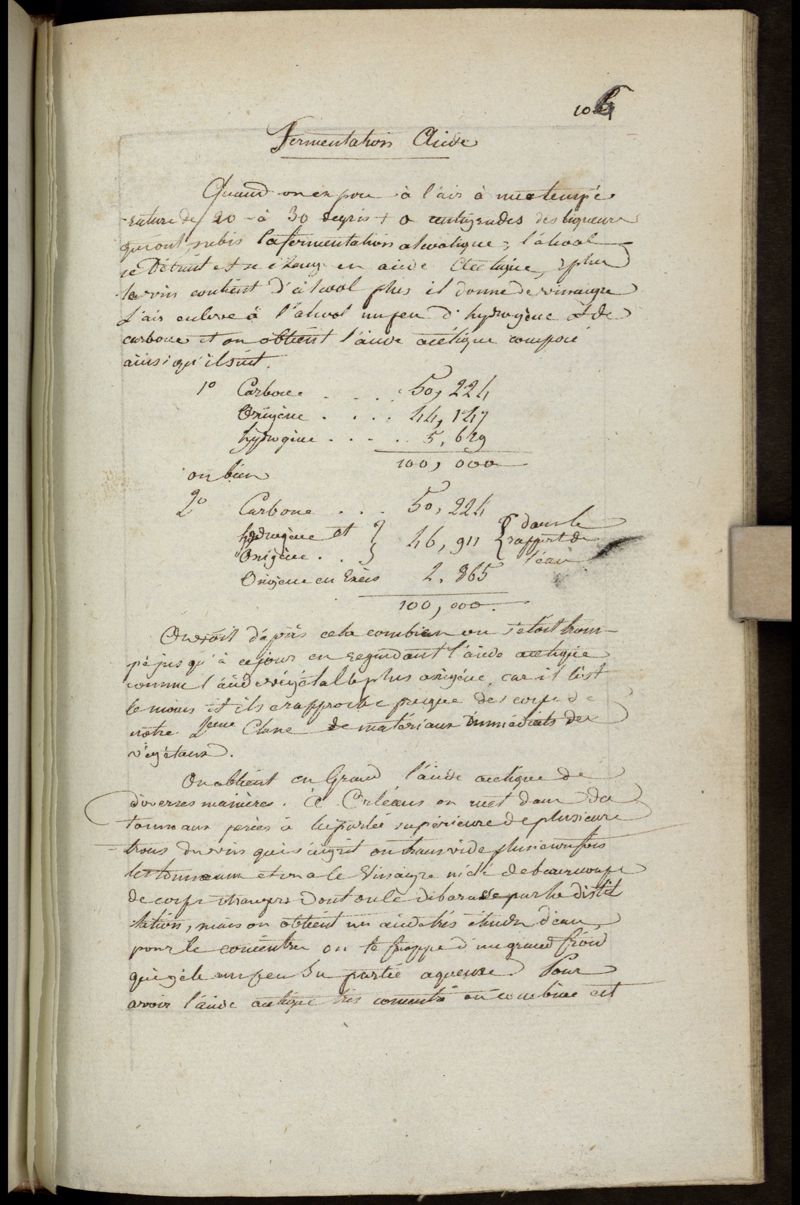 106
Fermentation Acide
Quand on expose à l'air à une tempé-
-rature de 20 à 30 degrés + 0 centigrades des liqueurs
qui ont subis la fermentation alcoolique, l'alcool
se Détruit et se change en acide acétique, plus
le vin contient d'alcool plus il donne de vinaigre
L'air enleve à l'alcool un peu d'hydrogène et de
carbone et on obtient l'acide acétique composé
ainsi qu'il suit.
1° Carbone . . . . 50, 224
Oxigène . . . . 44, 147
hydrogène . . . . 5, 629
100, 000
ou bien
2° Carbone . . . 50, 224
hydrogène et
Oxigène . . } 46, 911 { dans le rapport de l'eau
Oxigene en Excès 2. 865
100, 000.
On voit d'après cela combien on s'étoit trom-
pé jusqu'à ce jour en regardant l'acide acétique
comme l'acide végétal le plus oxigéné, car il l'est
le moins et il se rapproche presque des corps de
notre 2eme Classe de matériaux immédiats des
végétaux.
On obtient en Grand l'acide acétique de
diverses manières. à Orléans on met dans des
tonneaux percés à la partie supérieure de plusieurs
trous du vin qui s'aigrit on transvide plusieurs fois
les tonneaux et on a le Vinaigre mêlé de beaucoup
de corps etrangers dont on le débarasse par la distil
lation, mais on obtient un acide très étendu d'eau,
pour le concentrer on le frappe d'un grand froid
qui gèle un peu sa partie aqueuse. Pour
avoir l'acide acétique très concentré on combine cet